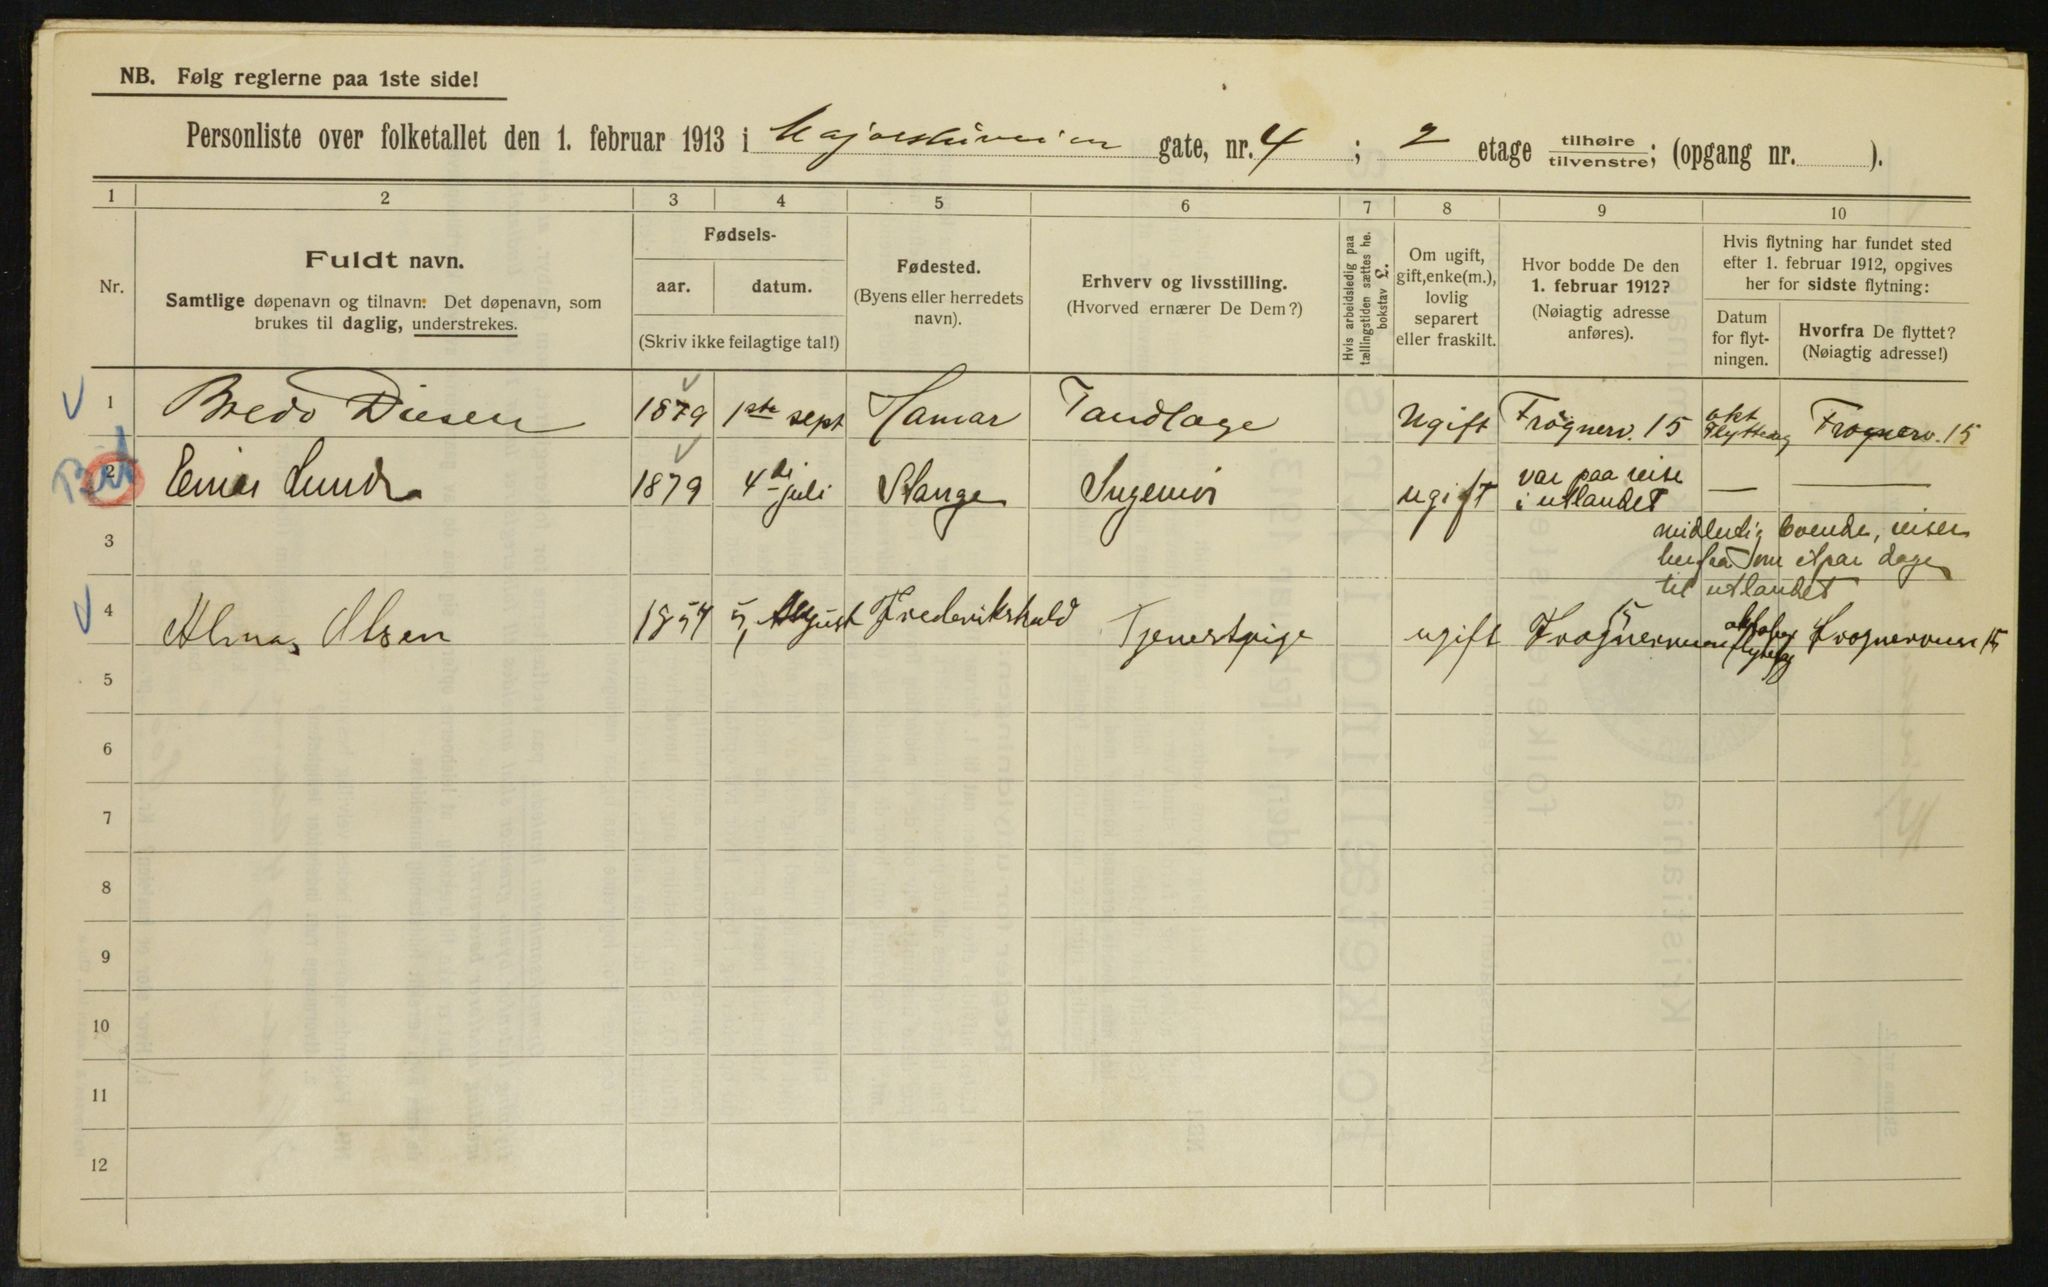 NB. Følg reglerne paa 1ste side!
Personliste over folketallet den 1. februar 1913 i Majorstuveien gate, nr. 4 ; 2 etage tilhøire/tilvenstre; (opgang nr. ).
1 2 3 4 5 6 7 8 9 10
Nr.
Fuldt navn.
Samtlige døpenavn og tilnavn. Det døpenavn, som
brukes til daglig, understrekes.
Fødsels-
aar. datum.
(Skriv ikke feilagtige tal!)
Fødested.
(Byens eller herredets
navn).
Erhverv og livsstilling.
(Hvorved ernærer De Dem?)
Hvis arbeidsledig paa
tællingstiden sættes he.
bokstav L.
Om ugift,
gift, enke(m.),
lovlig
separert
eller fraskilt.
Hvor bodde De den
1. februar 1912?
(Nøiagtig adresse
anføres).
Hvis flytning har fundet sted
efter 1. februar 1912, opgives
her for sidste flytning:
Datum
for flyt-
ningen.
Hvorfra De flyttet?
(Nøiagtig adresse!)
1 Bredo Diesen 1879 1ste sept Hamar Tandlæge Ugift Frognerv. 15 okt Flyttedag Frognerv. 15
2 Einar Lund 1879 4de juli Stange Ingeniør ugift var paa reise
i utlandet — —
3 midlertig boende, reiser
herfra om et par dage
til utlandet
4 Alma Olsen 1854 5 August Frederikshald Tjenestpige ugift Frognerveien 15 oktober flyttedag Frognerveien 15
5
6
7
8
9
10
11
12